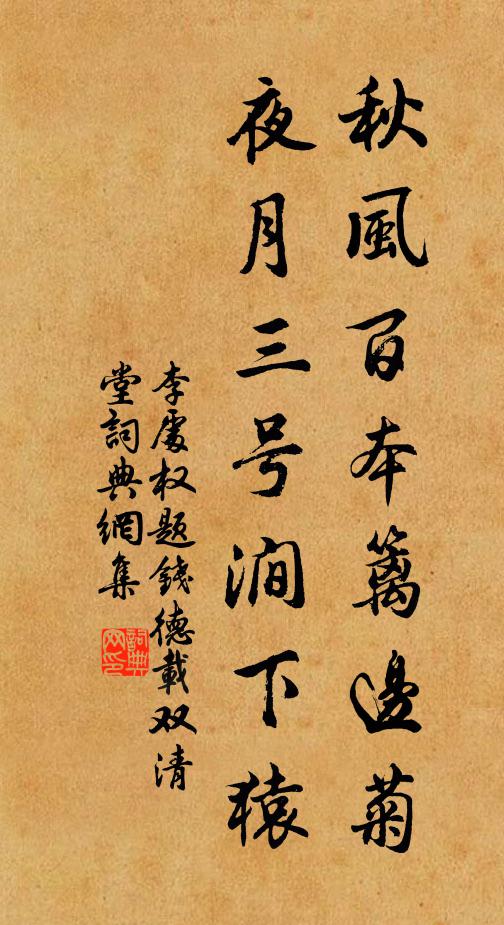 秋風百本篱邊菊
夜月三号澗下猿
李處权題錢德載双清
堂詞典網集
詞典
网印